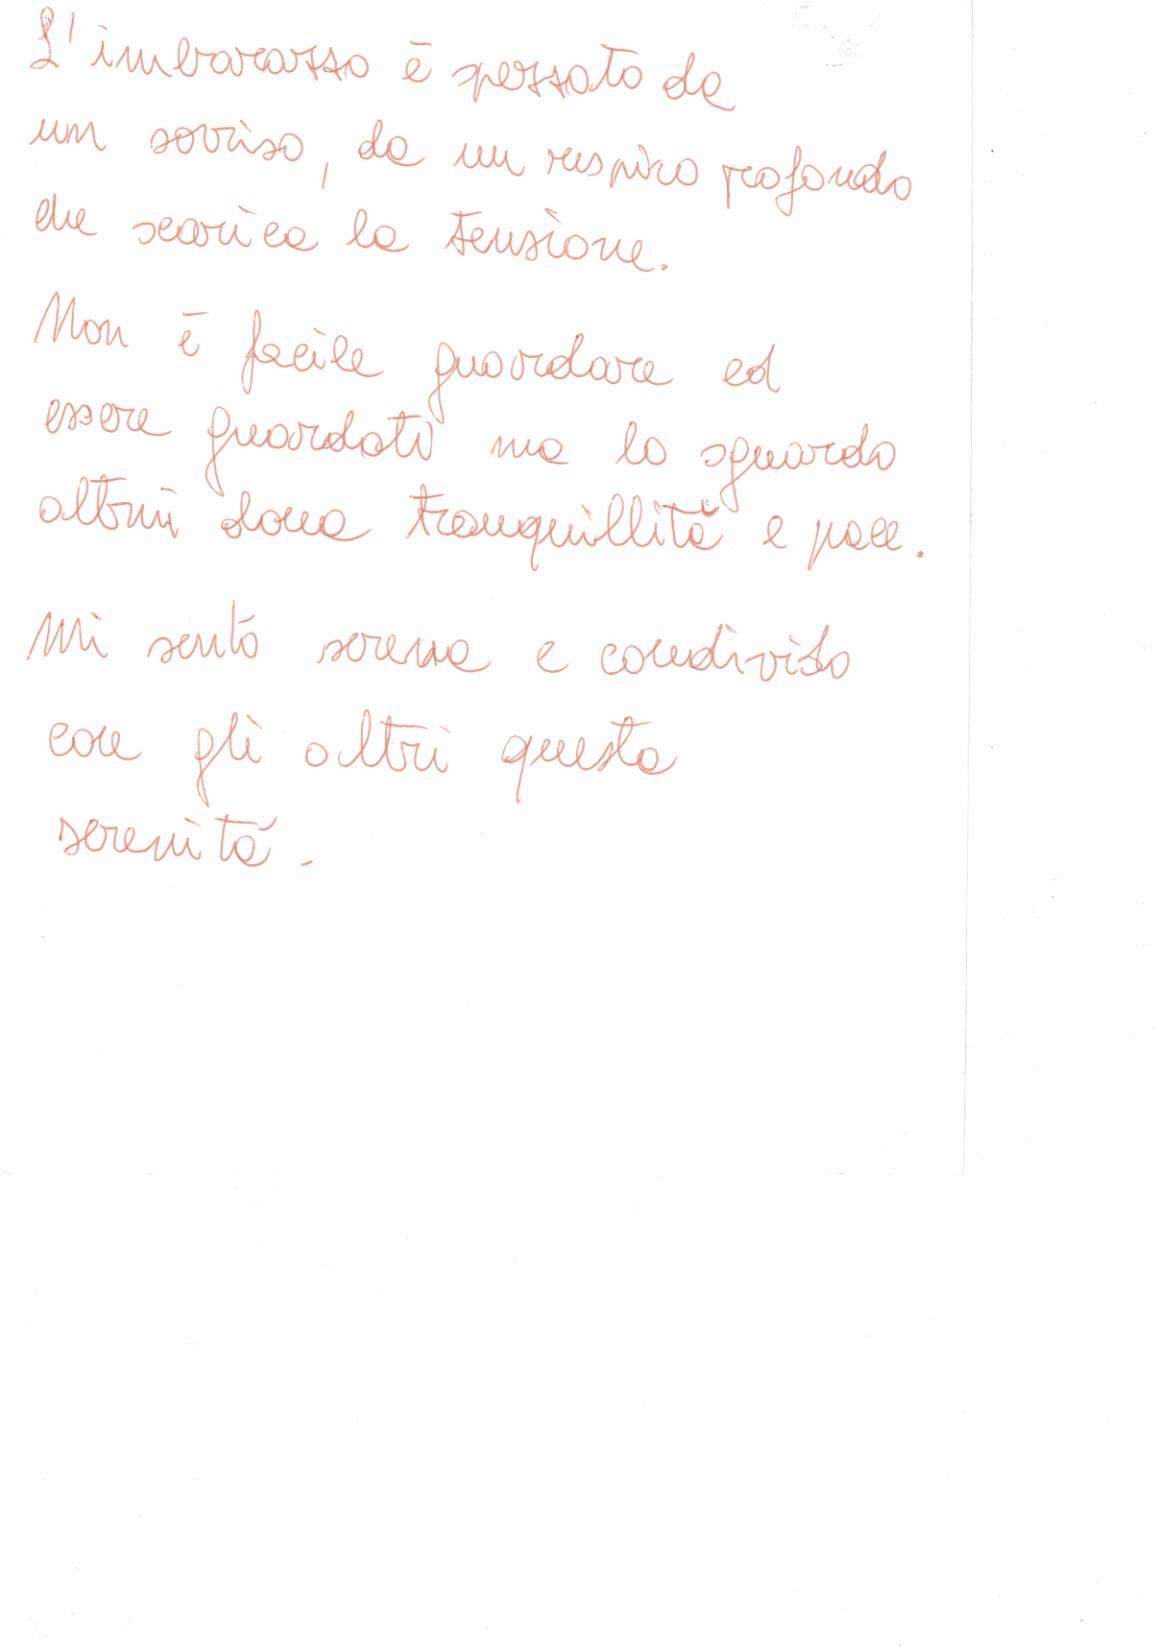 L'imbarasso è spezzato da
un sorriso, da un respiro profondo
che scarica la tensione.
Non è facile guardare ed
essere guardati ma lo sguardo
altrui dona tranquillità e pace.
Mi sento serena e condivido
con gli altri questa
serenità.